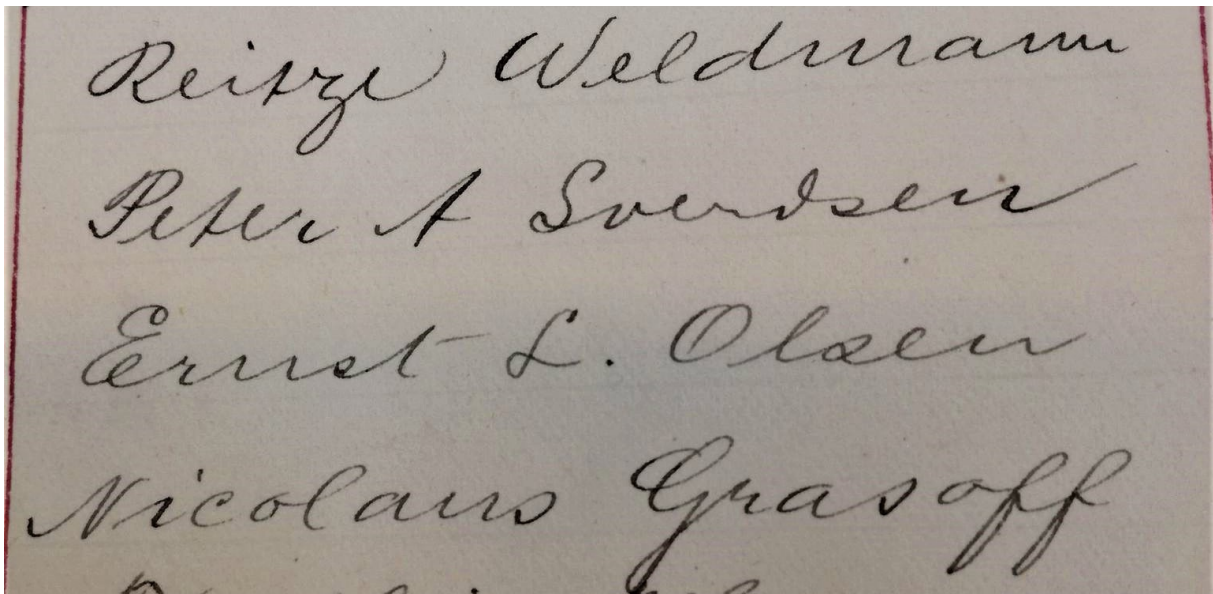 Reitze Weldmann
Peter A Svendsen
Ernst L. Olsen
Nicolaus Grasoff